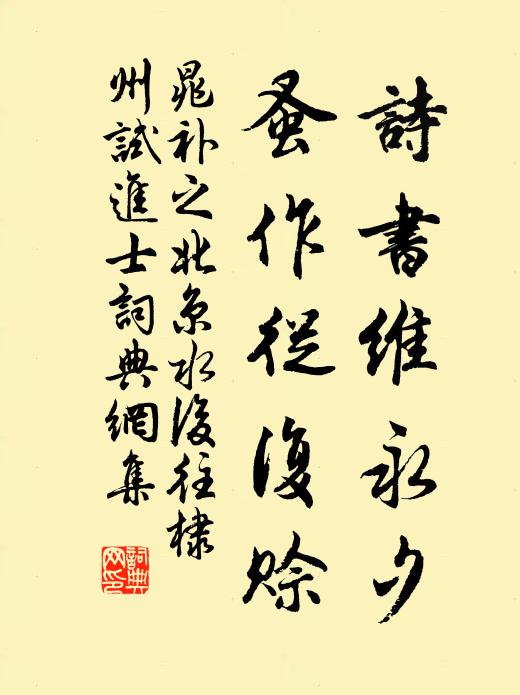 詩書維永夕
蚤作從復賒
晁補之北京水後往棣
州試進士詞典網集
詞典网印